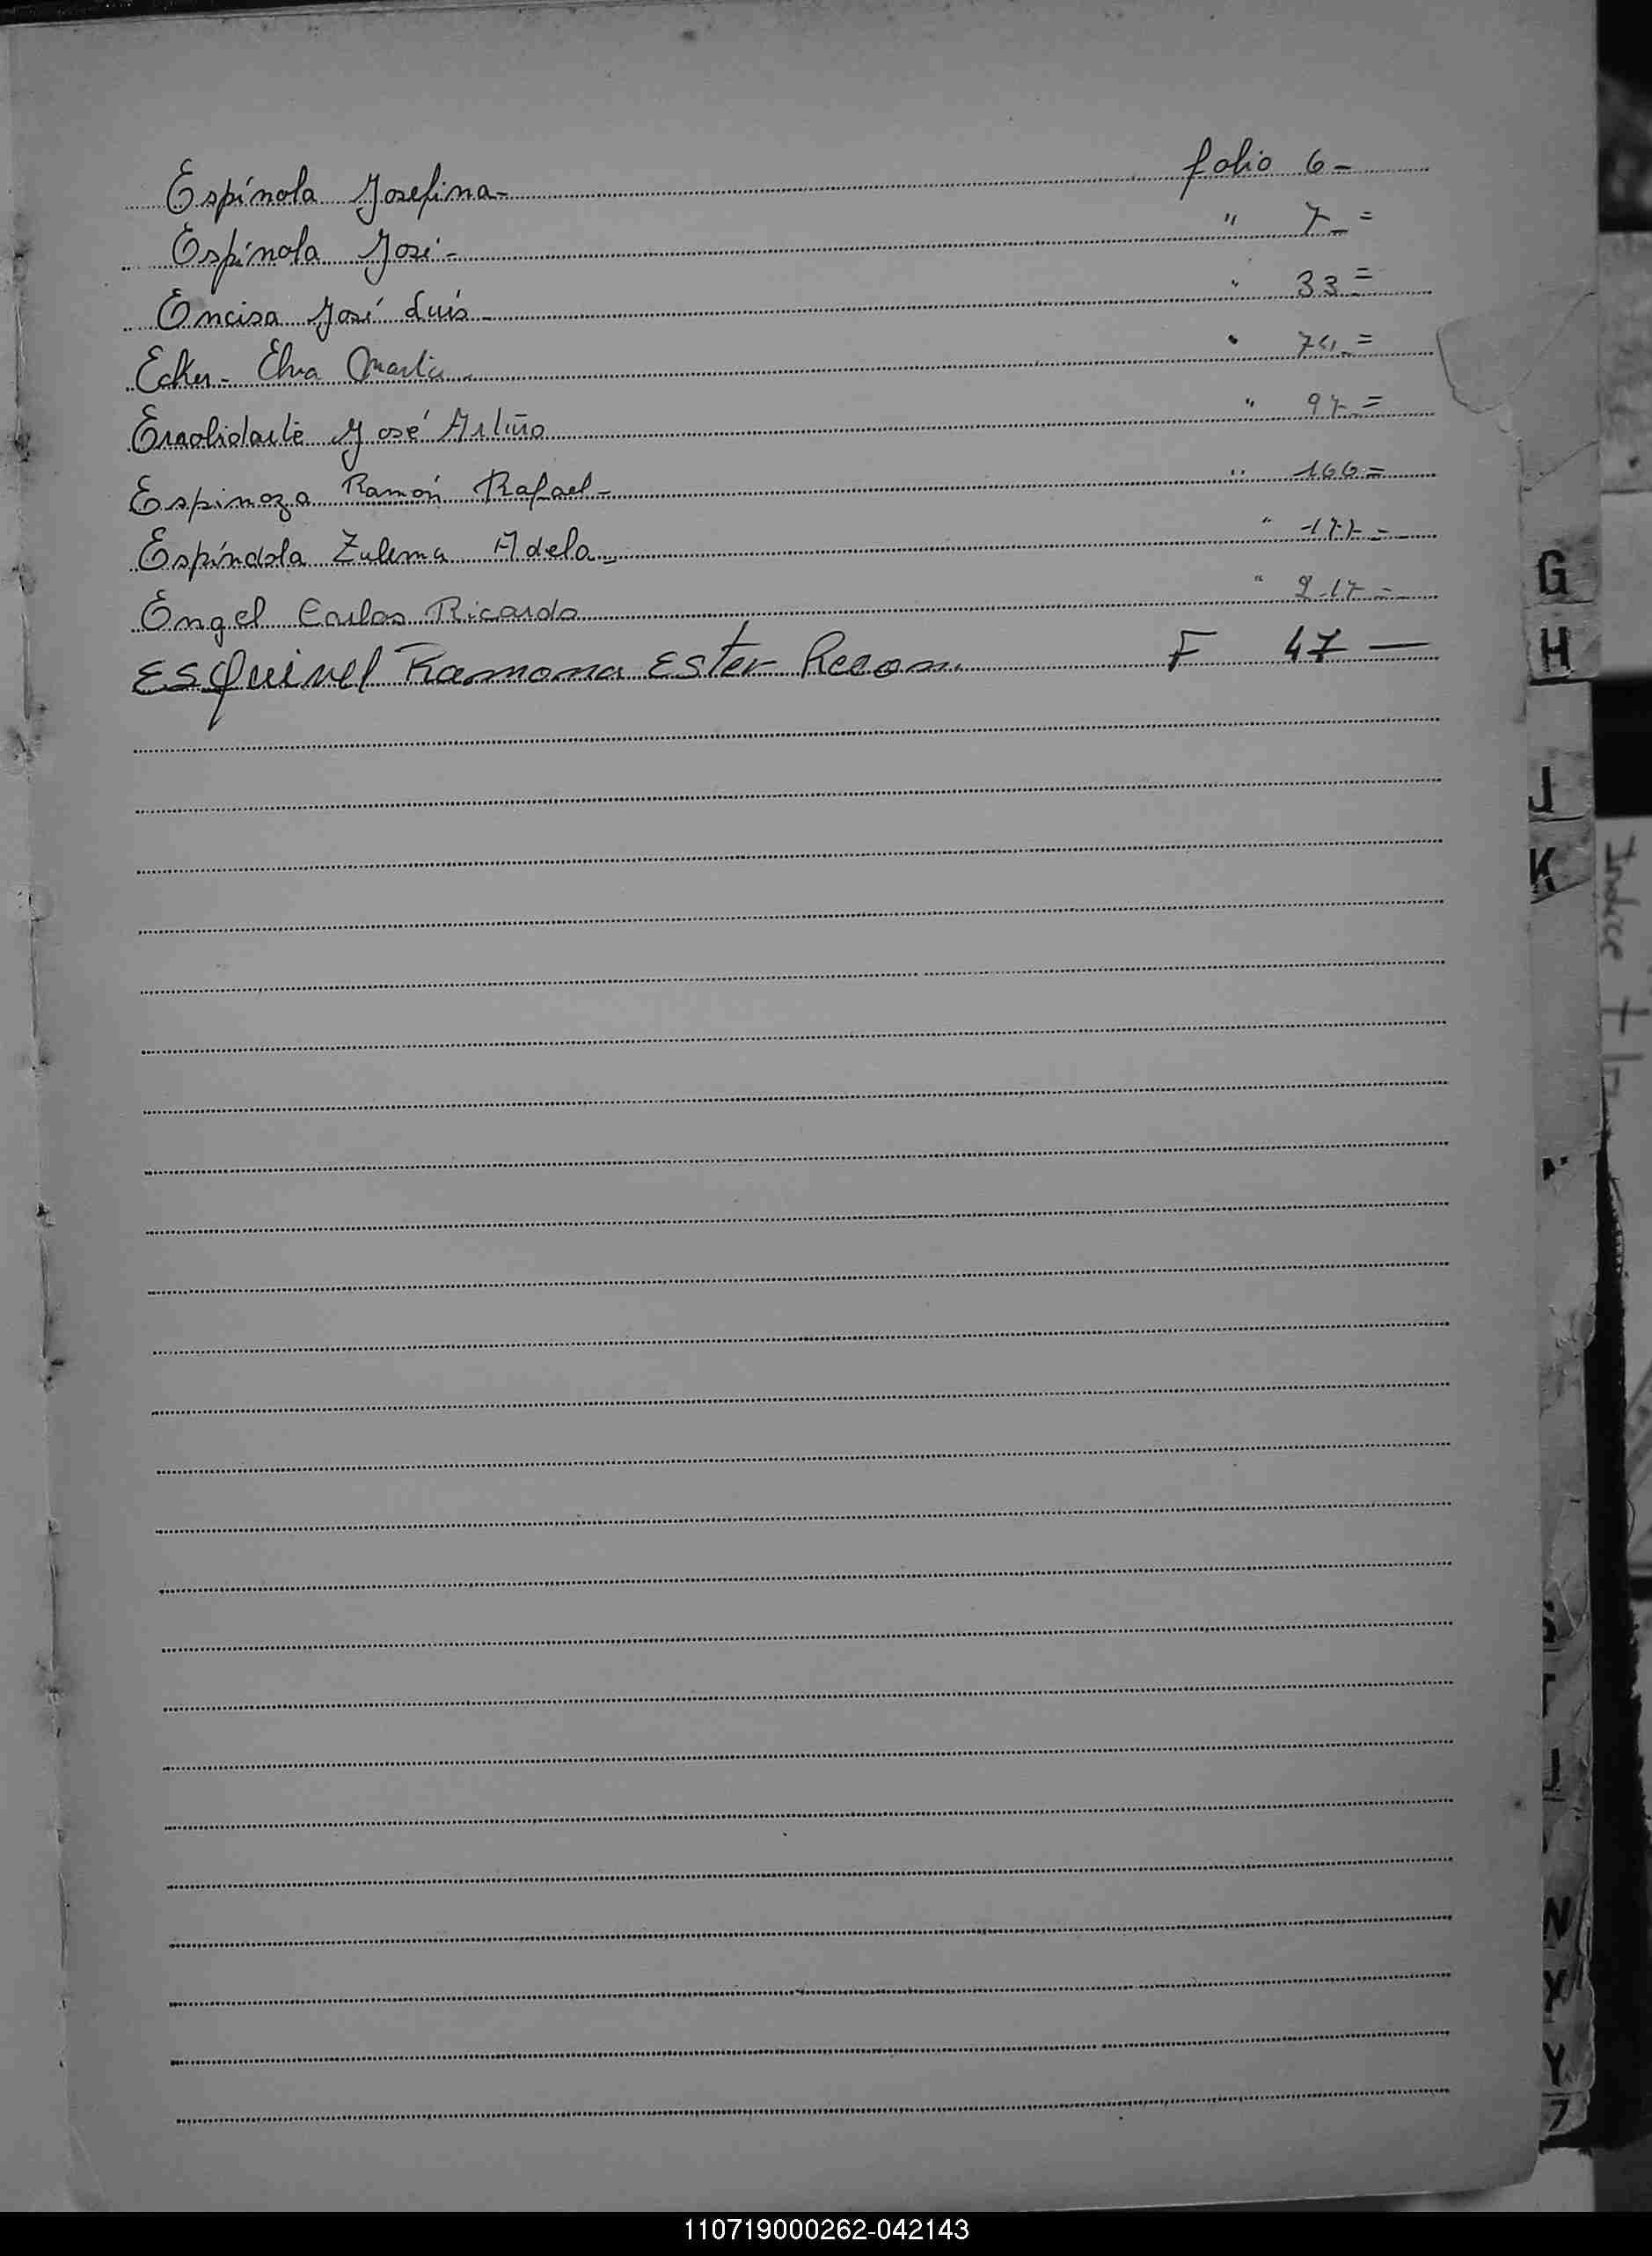 Espínola Josefina- folio 6-
Espínola José- " 7_=
Encisa José Luis - " 33=
Ecker- Elva " 74_=
José " 97_=
Espinoza Ramón Rafael- " 166=
Espíndola Zulema Adela_ " 177=
Engel Carlos Ricardo " 217=
Esquivel Ramona Ester Recon. F 47 —
G
H
J
K
Indice
T
N
X
Y
Z
110719000262-042143